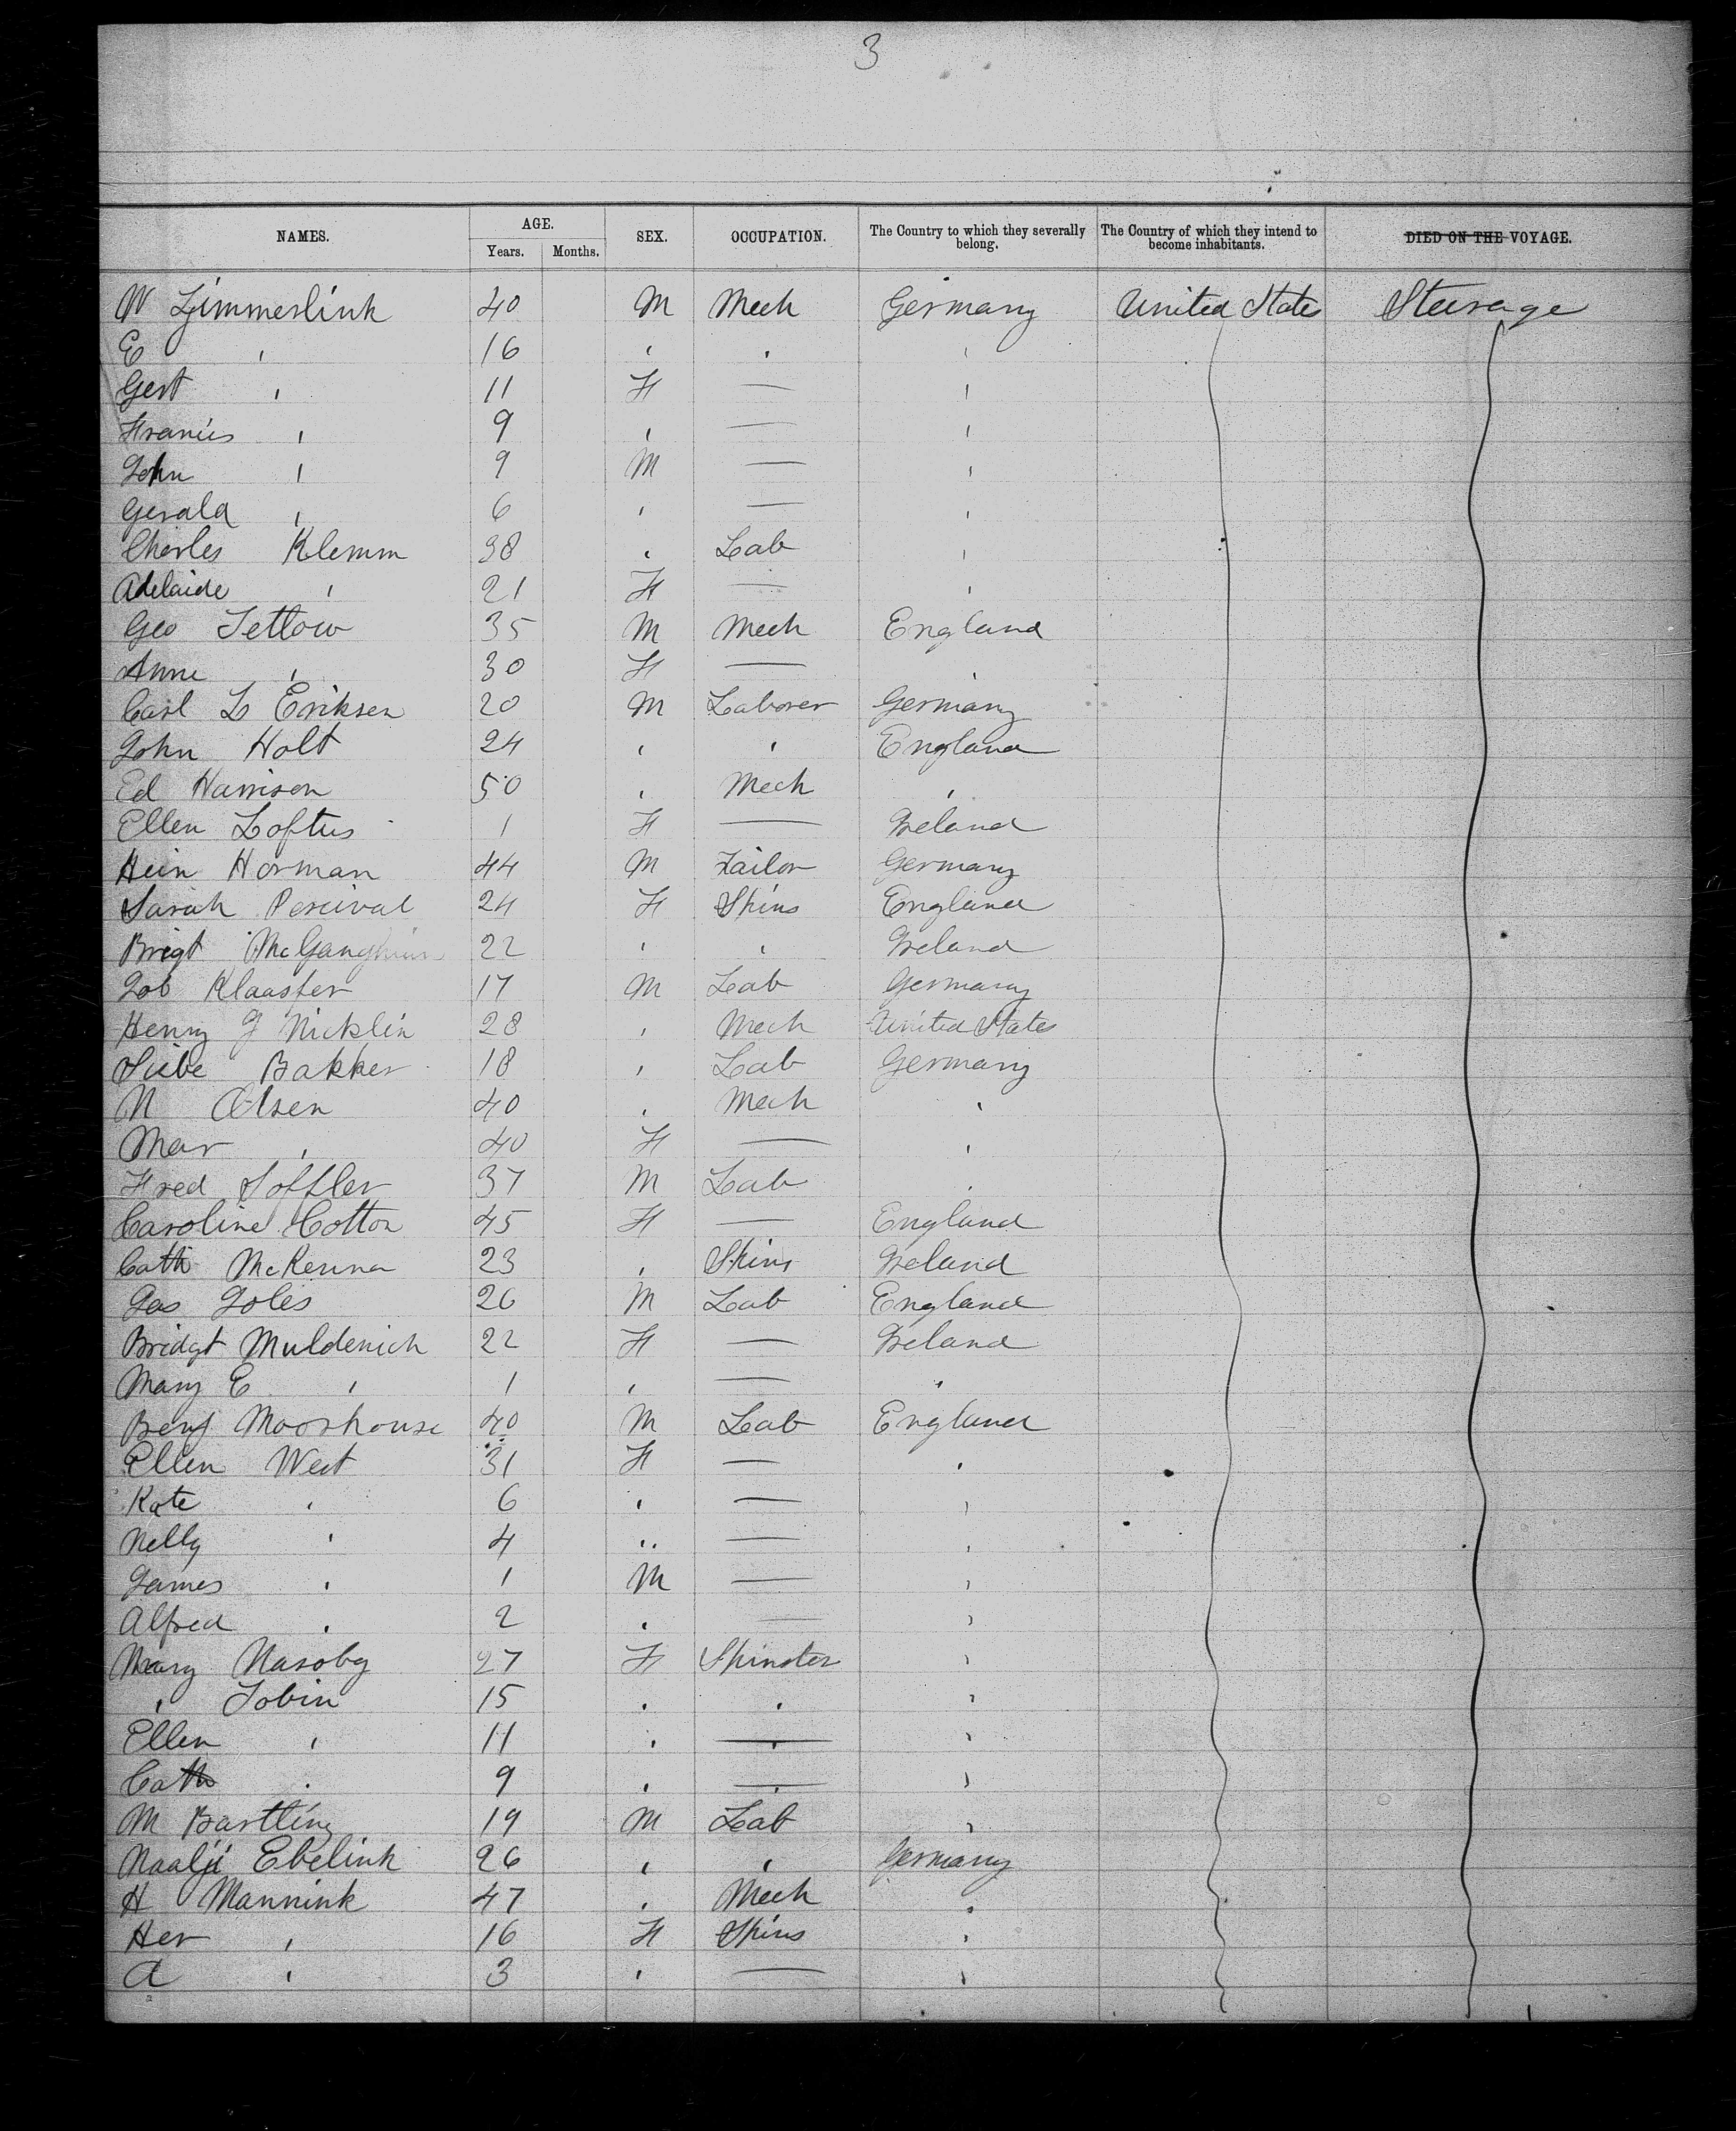 3
NAMES. AGE. SEX. OCCUPATION. The Country to which they severally belong. The Country of which they intend to become inhabitants. DIED ON THE VOYAGE.
Years. Months.
W Zimmerlink 40 M Mech Germany United State Steerage
E " 16 " " "
Gert " 11 F — "
Francis " 9 " — "
John " 9 M — "
Gerald " 6 " — "
Charles Klemm 38 " Lab "
Adelaide " 21 F — "
Geo Tetlow 35 M Mech England
Anne " 30 F — "
Carl L Eriksen 20 M Laborer Germany
John Holt 24 " " England
Ed Harrison 50 " Mech "
Ellen Loftus 1 F — Ireland
Hein Horman 44 M Tailor Germany
Sarah Percival 24 F Spins England
Brigt 22 " " Ireland
Job Klaaster 17 M Lab Germany
Henry J Nicklin 28 " Mech United States
Siebe Bakker 18 " Lab Germany
N Olsen 40 " Mech "
Mar " 40 F — "
Fred Soffler 37 M Lab "
Caroline Cotton 45 F — England
Cath McKenna 23 " Spins Ireland
Jas Joles 26 M Lab England
Bridgt Muldenich 22 F — Ireland
Mary E " 1 " — "
Benj Moorhouse 40 M Lab England
Ellen West 31 F — "
Kate " 6 " — "
Nelly " 4 " — "
James " 1 M — "
Alfred " 2 " — "
Mary Nasoby 27 F Spinster "
" Tobin 15 " " "
Ellen " 11 " — "
Cath " 9 " — "
M Bartling 19 M Lab "
Naalji Ebelink 26 " " Germany
H Mannink 47 " Mech "
Her " 16 F Spins "
A " 3 " — "